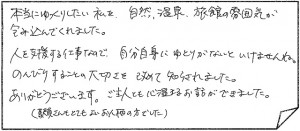 本当にゆっくりしたい私を、自然、温泉、旅館の雰囲気が
包み込んでくれました。
人を支援する仕事なので、自分自身にゆとりがないといけませんね。
のんびりすることの大切さを改めて知らされました。
ありがとうございます。ご主人とも心温まるお話ができました。
(若奥さんもとてもよいお人柄の方でした)